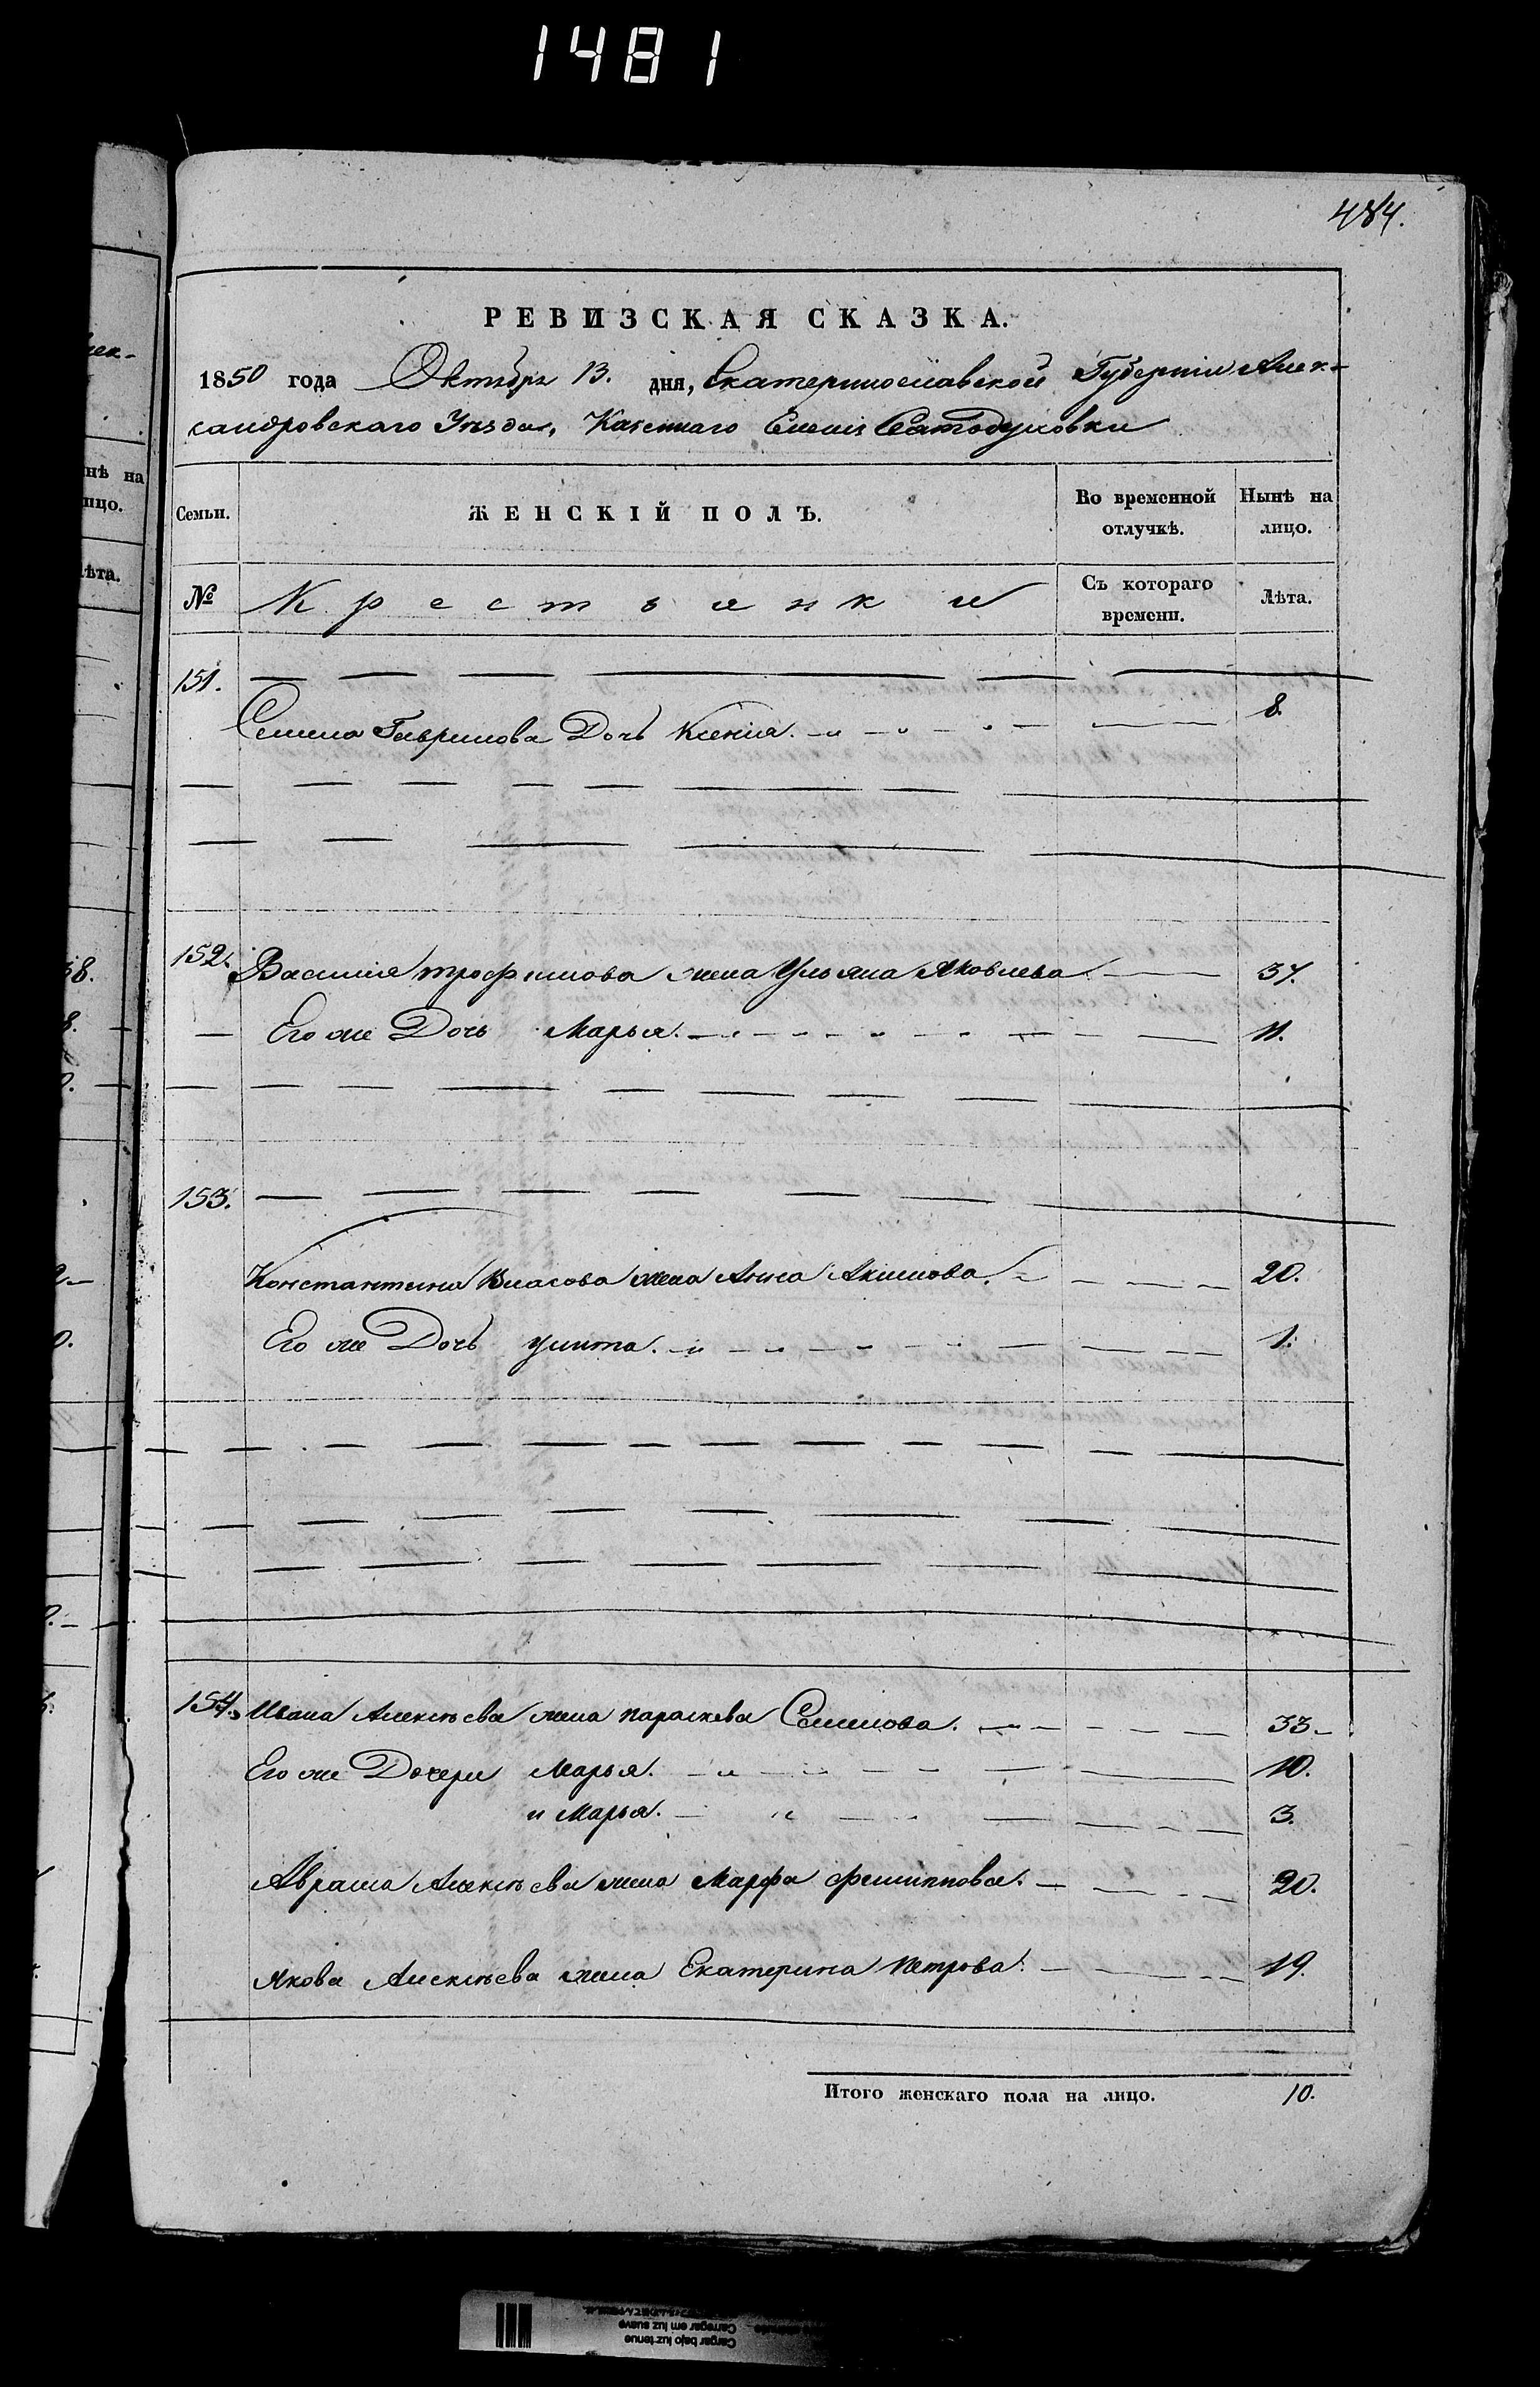 1481
484.
РЕВИЗСКАЯ СКАЗКА.
1850 года Октября 13. дня, Екатеринославской Губерніи Алек-
сандровскаго Уѣзда, Казеннаго Селенія
Семьи. ЖЕНСКІЙ ПОЛЪ. Во временной отлучкѣ. Нынѣ на лицо.
№ Крестьянки Съ котораго времени. Лѣта.
151.
Семена Гаврилова Дочь Ксенія. 8.
152. Василія трофимова жена Ульяна Яковлева 37.
Его же Дочь Марья. 11.
153.
Константина Власова жена Анна Акимова. 20.
Его же Дочь улита. 1.
154. Ивана Алексѣева жена параскева Семенова. 33.
Его же Дочери Марья. 10.
и Марья. 3.
Аврама Алексѣева жена Марфа филиппова. 20.
Якова Алексѣева жена Екатерина петрова. 19.
Итого женскаго пола на лицо. 10.
Cargar bajo luz tenue
Carregar em luz suave